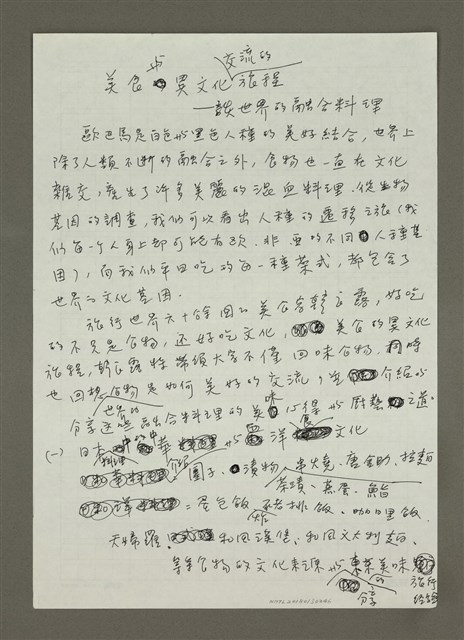 美食與異文化交流的旅程
——談世界的融合料理
歐巴馬是白色與黑色人種的美好結合，世界上
除了人類不斷的融合之外，食物也一直在文化
雜交，產生了許多美麗的混血料理．從生物
基因的調查，我們可以看出人種的遷移之旅(我
們每一個人身上都可能有歐．非．亞的不同人種基
因)，而我們平日吃的每一種菜式，都包含了
世界的文化基因．
旅行世界六十餘國的美食家韓良露，好吃
的不只是食物，還好吃文化，美食的異文化
旅程，韓良露將帶領大家不僅回味食物，同時
也回想食物是如何美好的交流，並介紹與
分享世界融合料理的美味心得與廚藝之道．
(一) 日本料理中的中華與西洋飲食文化
介紹 團子．漬物．串燒．唐金助．拉麵
茶漬．蒸蛋．鮨
＝蛋包飯 炸豬排飯．咖哩飯．
天婦羅．和風漢堡．和風義大利麵．
等等食物的文化來源與東菜美味的旅行
分享 經驗